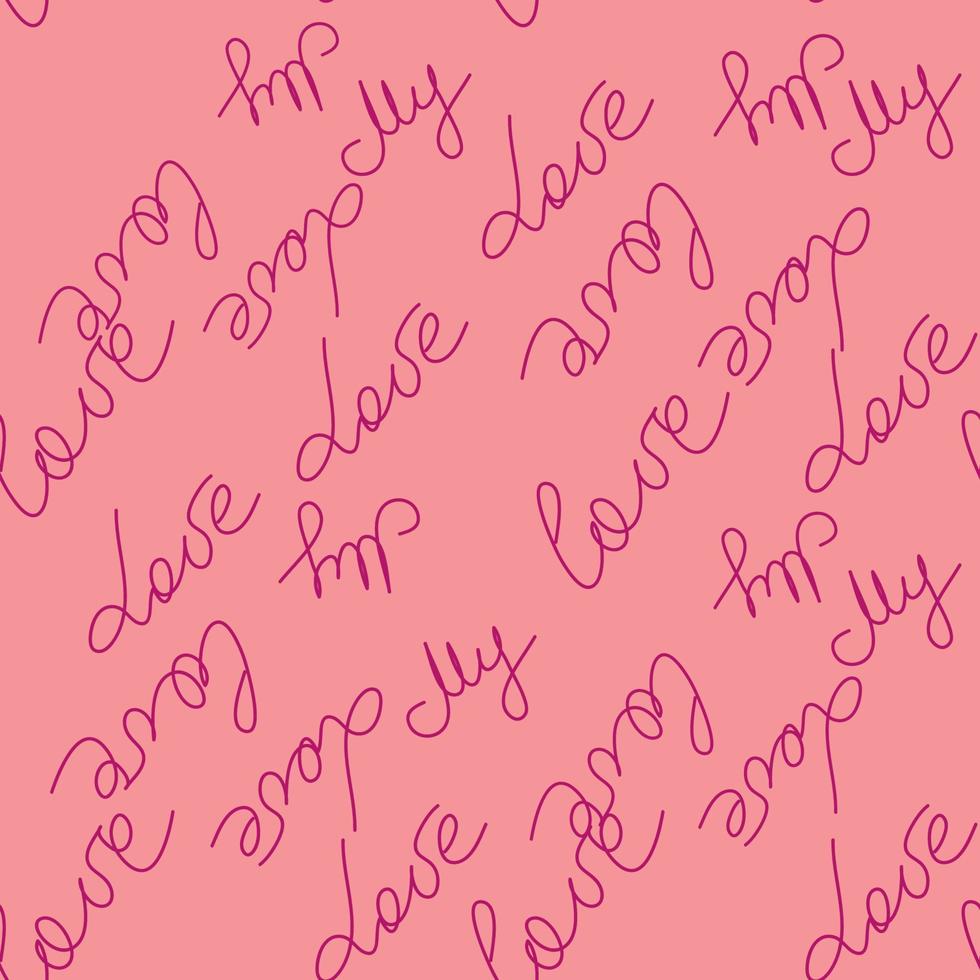 My
My
My
My
Love
love
Love
love
Love
love
Love
Love
love
Love
My
My
My
love
My
love
Love
Love
love
Love
love
Love